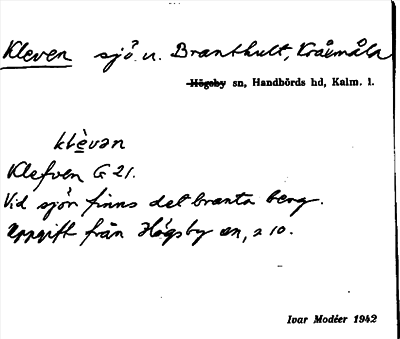 Kleven sjö n. Branthult, Kråkmåla
Högsby sn, Handbörds hd, Kalm. l.
klèvan
Klefven G 21.
Vid sjön finns det branta berg.
Uppgift från Högsby sn, s 10.
Ivar Modéer 1942